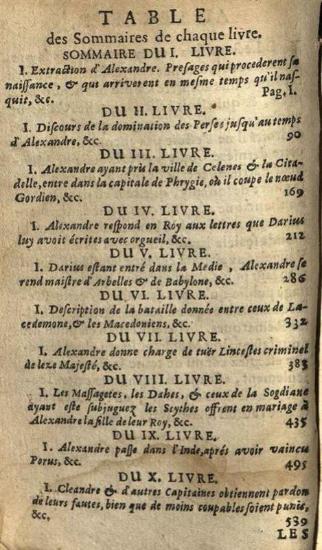 TABLE
des Sommaires de chaque livre.
SOMMAIRE DU I. LIVRE.
I. Extraction d'Alexandre. Presages qui procederent sa
naissance, & qui arriverent en mesme temps qu'il nas-
quit, &c. Pag. 1.
DU II. LIVRE.
I. Discours de la domination des Perses jusqu'au temps
d'Alexandre, &c. 90
DU III. LIVRE.
I. Alexandre ayant pris la ville de Celenes & la Cita-
delle, entre dans la capitale de Phrygie, où il coupe le nœud
Gordien, &c. 169
DU IV. LIVRE.
I. Alexandre respond en Roy aux lettres que Darius
luy avoit écrites avec orgueil, &c. 212
DU V. LIVRE.
I. Darius estant entré dans la Medie, Alexandre se
rend maistre d'Arbelles & de Babylone, &c. 286
DU VI. LIVRE.
I. Description de la bataille donnée entre ceux de La-
cedemone, & les Macedoniens, &c. 332
DU VII. LIVRE.
I. Alexandre donne charge de tuër Lincestes criminel
de leze Majesté, &c. 383
DU VIII. LIVRE.
I. Les Massagetes, les Dahes, & ceux de la Sogdiane
ayant esté subjuguez les Scythes offrent en mariage à
Alexandre la fille de leur Roy, &c. 435
DU IX. LIVRE.
I. Alexandre passe dans l'Inde, aprés avoir vaincu
Porus, &c. 495
DU X. LIVRE.
I. Cleandre & d'autres Capitaines obtiennent pardon
de leurs fautes, bien que de moins coupables soient punis,
&c. 539
LES